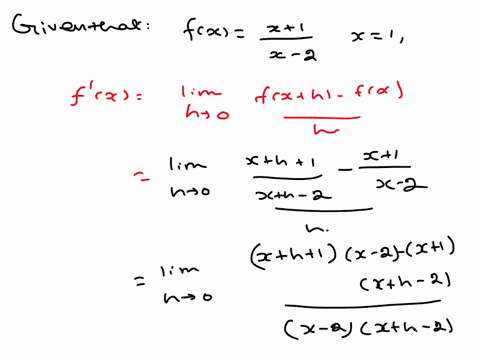 Given that: f(x) = x+1 / x-2   x = 1,
f'(x) = lim h→0 f(x+h) - f(x) / h
= lim h→0 x+h+1 / x+h-2 - x+1 / x-2 / h.
= lim h→0 (x+h+1)(x-2)-(x+1)
(x+h-2)
(x-2)(x+h-2)